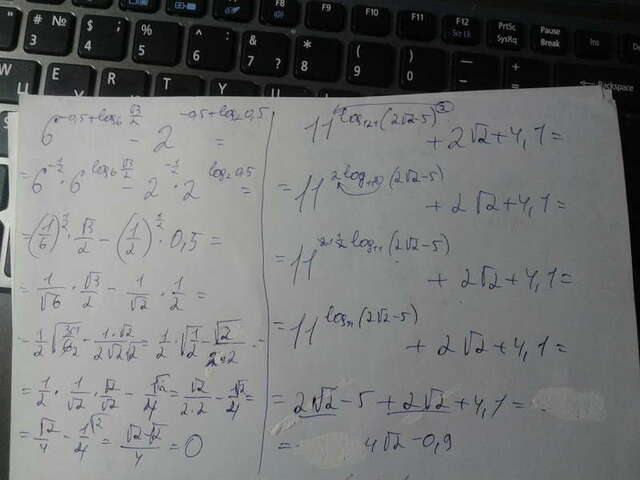 F6 F7 F8 F9 F10 F11 F12 PrtSc SysRq Pause Break Ins
Scr Lk
# 3 № $ 4 ; % 5 ^ 6 : & 7 ? * 8 ( 9 ) 0 - + =
W E R T Y U I O P Backspace
6^(-0,5+log₆ √3/2) - 2^(-0,5+log₂ 0,5) =
= 6^(-1/2) · 6^(log₆ √3/2) - 2^(-1/2) · 2^(log₂ 0,5) =
= (1/6)^(1/2) · √3/2 - (1/2)^(1/2) · 0,5 =
= 1/√6 · √3/2 - 1/√2 · 1/2 =
= 1/2 · 1/√2 · √2/√2 - √2/4 = √2/(2·2) - √2/4 =
= √2/4 - 1√2/4 = (√2-√2)/4 = 0
11^(log₁₂₁(2√2-5)²) + 2√2+4,1=
= 11^(2log₁₂₁(2√2-5)) + 2√2+4,1=
= 11^(2·1/2 log₁₁(2√2-5)) + 2√2+4,1=
= 11^(log₁₁(2√2-5)) + 2√2+4,1=
= 2√2-5+2√2+4,1=
= 4√2-0,9